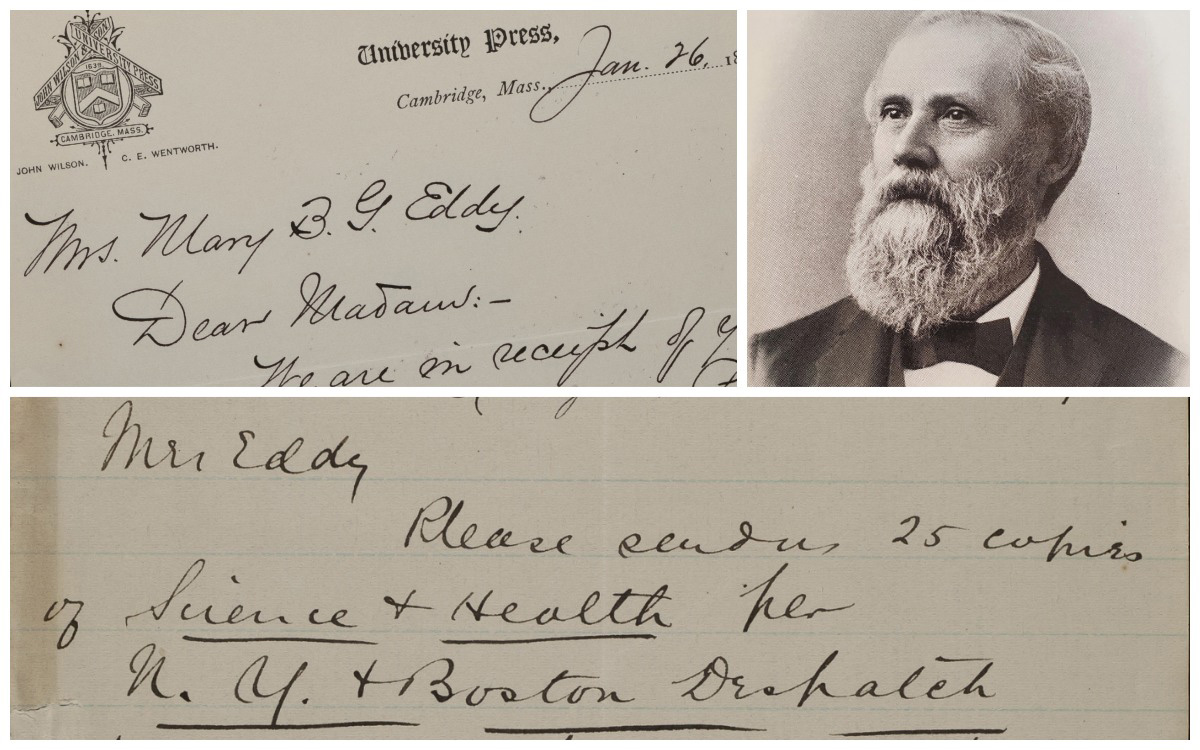 JOHN WILSON & SON
UNIVERSITY PRESS
1639
CAMBRIDGE, MASS.
JOHN WILSON. C. E. WENTWORTH.
University Press,
Cambridge, Mass., Jan. 26, 18
Mrs. Mary B. G. Eddy.
Dear Madam:-
We are in receipt of
Mrs Eddy
Please send us 25 copies
of Science & Health per
N. Y. & Boston Despatch